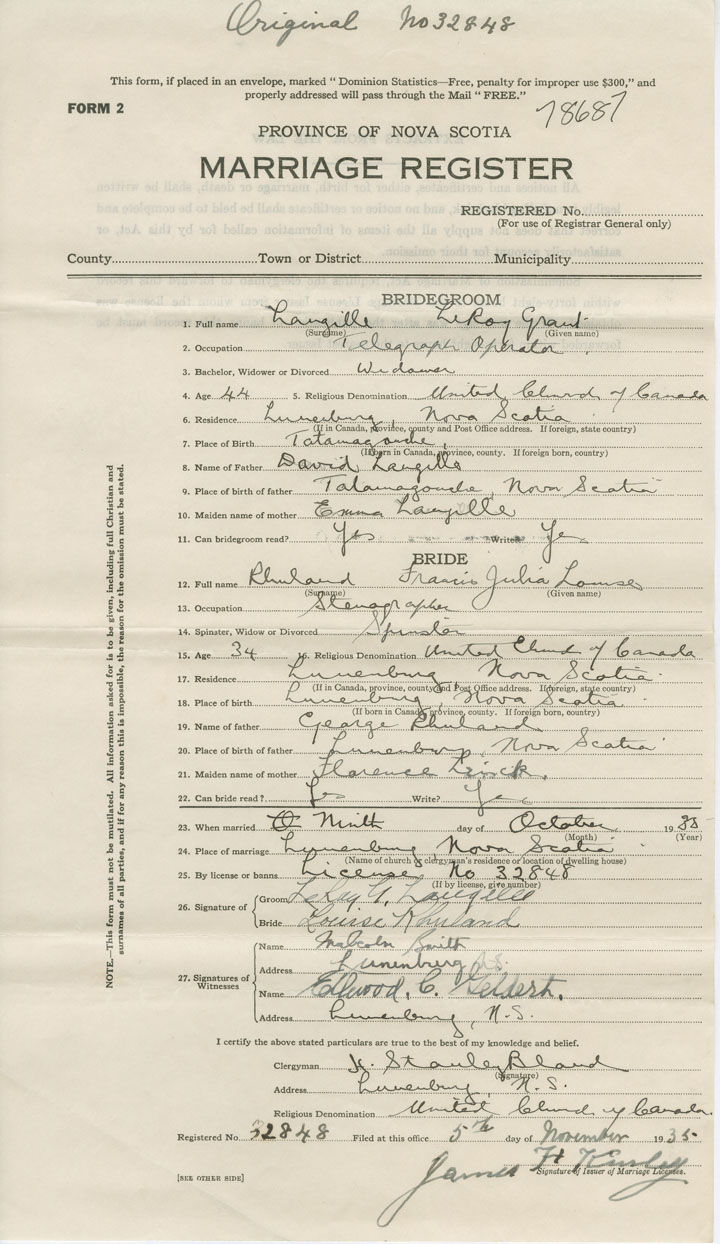 Original No 32848
This form, if placed in an envelope, marked "Dominion Statistics—Free, penalty for improper use $300," and
properly addressed will pass through the Mail "FREE."
FORM 2
78687
PROVINCE OF NOVA SCOTIA
MARRIAGE REGISTER
REGISTERED No.
(For use of Registrar General only)
County Town or District Municipality
BRIDEGROOM
1. Full name Langille LeRoy Grant
(Surname) (Given name)
2. Occupation Telegraph Operator
3. Bachelor, Widower or Divorced Widower
4. Age 44 5. Religious Denomination United Church of Canada
6. Residence Lunenburg, Nova Scotia
(If in Canada, province, county and Post Office address. If foreign, state country)
7. Place of Birth Tatamagouche,
(If born in Canada, province, county. If foreign born, country)
8. Name of Father David Langille
9. Place of birth of father Tatamagouche, Nova Scotia
10. Maiden name of mother Emma Langille
11. Can bridegroom read? Yes Write? Yes
BRIDE
12. Full name Rhuland Francis Julia Louise
(Surname) (Given name)
13. Occupation Stenographer
14. Spinster, Widow or Divorced Spinster
15. Age 34 16. Religious Denomination United Church of Canada
17. Residence Lunenburg Nova Scotia
(If in Canada, province, county and Post Office address. If foreign, state country)
18. Place of birth Lunenburg, Nova Scotia
(If born in Canada, province, county. If foreign born, country)
19. Name of father George Rhuland
20. Place of birth of father Lunenburg, Nova Scotia
21. Maiden name of mother Florence Zinck.
22. Can bride read? Yes Write? Yes
23. When married Ninth day of October 1935
(Month) (Year)
24. Place of marriage Lunenburg, Nova Scotia
(Name of church or clergyman's residence or location of dwelling house)
25. By license or banns License No 32848
(If by license, give number)
26. Signature of Groom LeRoy G. Langille
Bride Louise Rhuland
27. Signatures of Witnesses
Name Malcolm Smith
Address Lunenburg N.S.
Name Ellwood. C. Geldert.
Address Lunenburg, N.S.
I certify the above stated particulars are true to the best of my knowledge and belief.
Clergyman Stanley Bland
(Signature)
Address Lunenburg, N.S.
Religious Denomination United Church of Canada.
Registered No. 32848 Filed at this office 5th day of November 1935
James H Kinley
Signature of Issuer of Marriage Licenses.
[SEE OTHER SIDE]
NOTE.—This form must not be mutilated. All information asked for is to be given, including full Christian and
surnames of all parties, and if for any reason this is impossible, the reason for the omission must be stated.